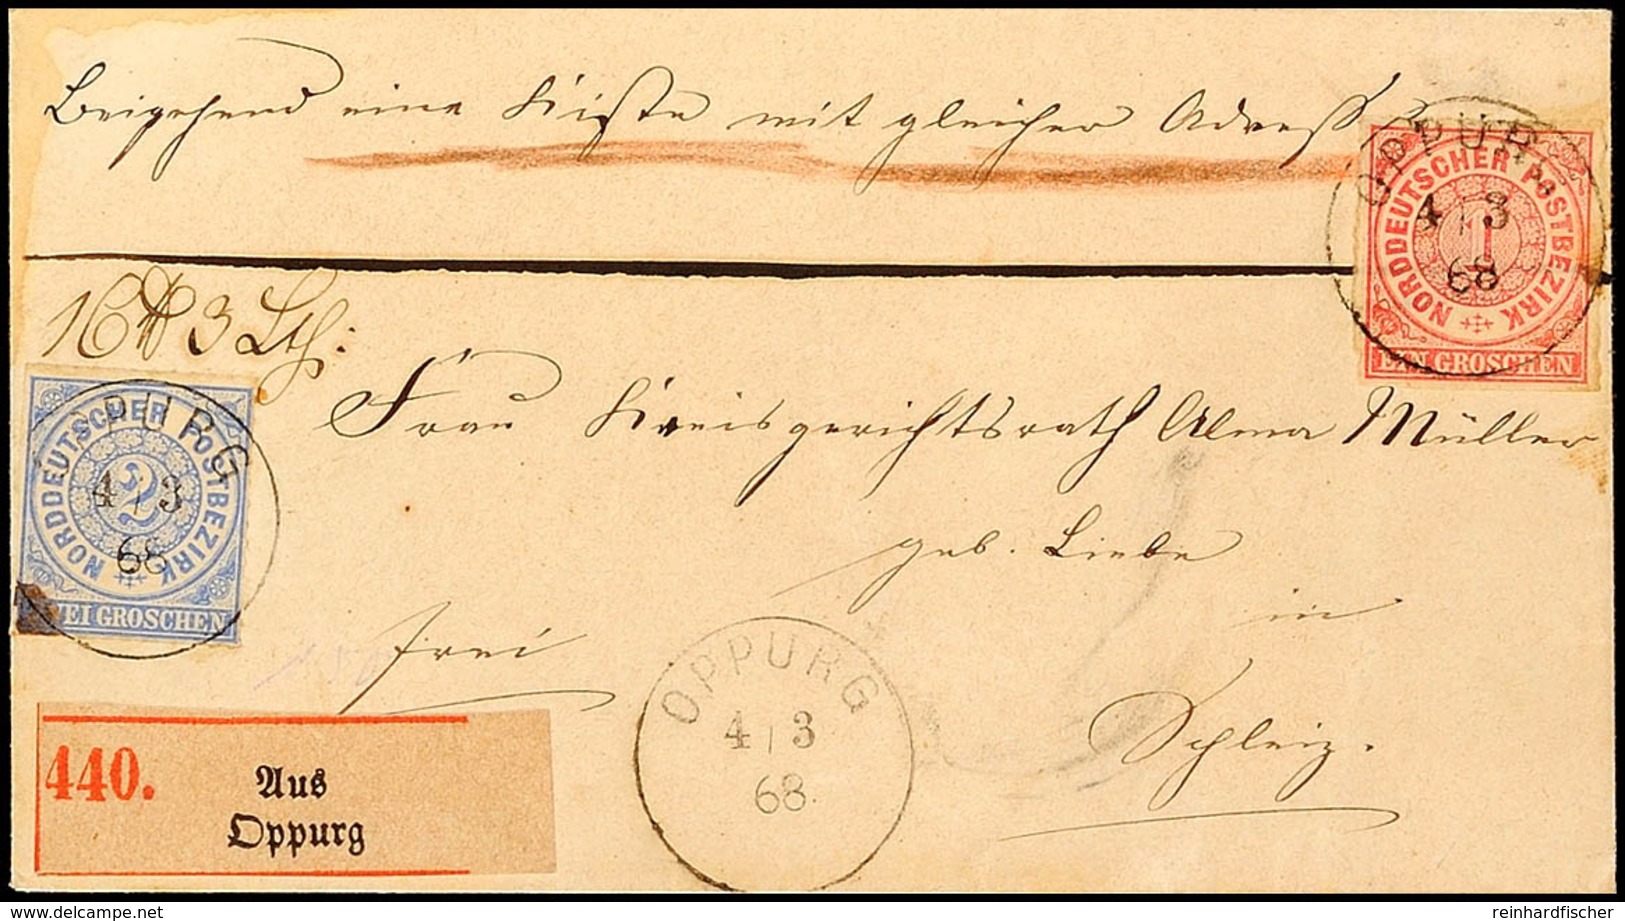 Beigehend eine Kiste mit gleicher Adreß
OPPURG
4 | 3
68
NORDDEUTSCHER POSTBEZIRK
1
EIN GROSCHEN
16 ℔ 3 Lth:
OPPURG
4 | 3
68
NORDDEUTSCHER POSTBEZIRK
2
ZWEI GROSCHEN
Frau Kreisgerichtsrath Alma Müller
geb. Liebe
in
frei
Schleiz.
OPPURG
4 | 3
68.
440.
Aus
Oppurg
delcampe.net
reinhardfischer